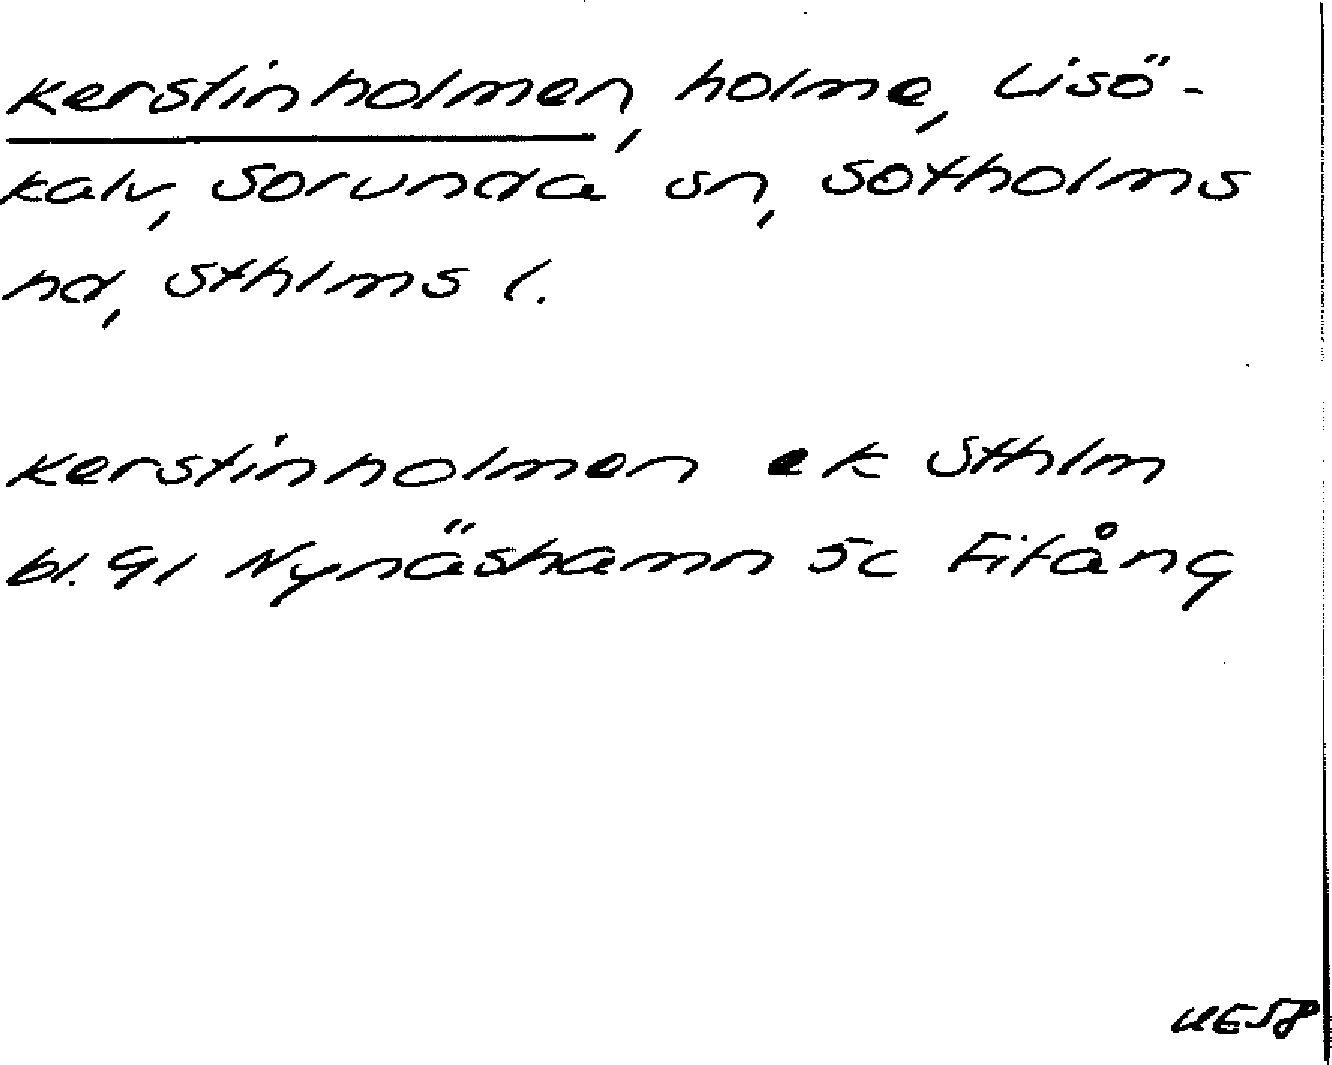 Kerstinholmen, holme, Lisö-
kalv, Sorunda sn, Sotholms
hd, Sthlms l.
Kerstinholmen ek Sthlm
bl. 91 Nynäshamn 5c Fifång
UE58